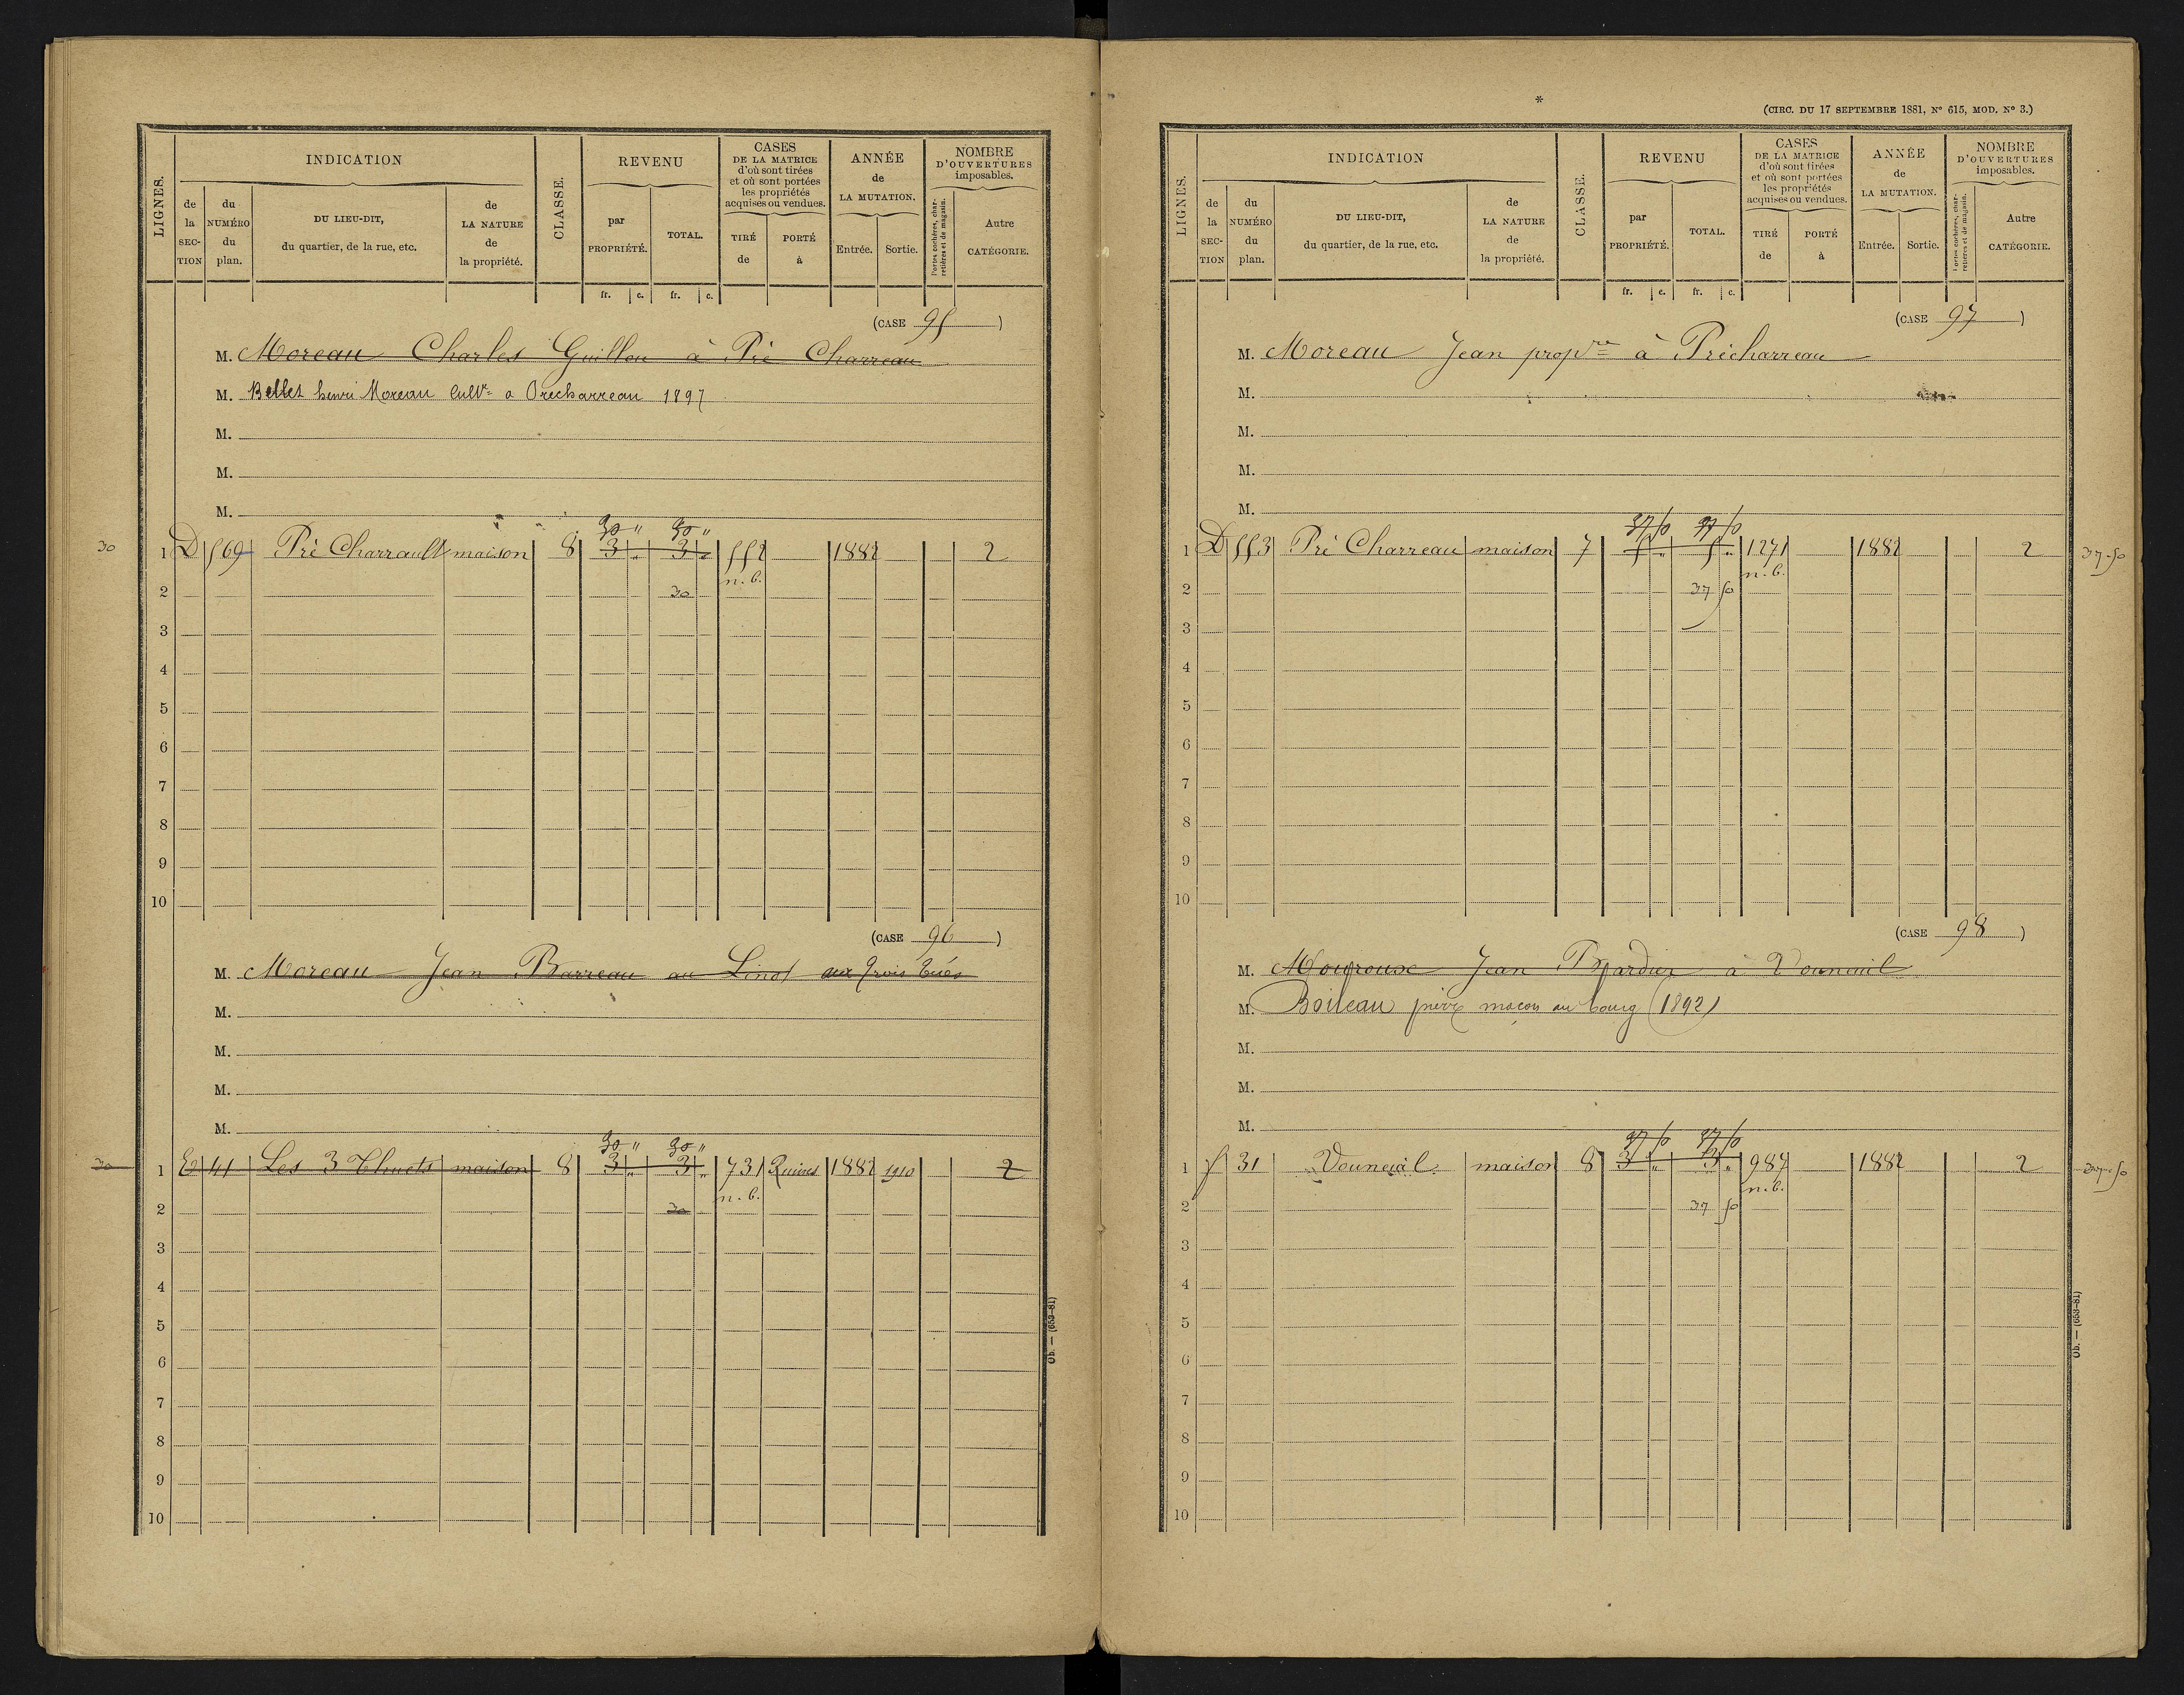 LIGNES.
INDICATION
de la SECTION
du NUMÉRO du plan.
DU LIEU-DIT, du quartier, de la rue, etc.
de LA NATURE de la propriété.
CLASSE.
REVENU
par PROPRIÉTÉ.
TOTAL.
CASES DE LA MATRICE d'où sont tirées et où sont portées les propriétés acquises ou vendues.
TIRÉ de
PORTÉ à
ANNÉE de LA MUTATION.
Entrée.
Sortie.
NOMBRE D'OUVERTURES imposables.
Portes cochères, charretières et de magasin.
Autre CATÉGORIE.
fr. c. fr. c.
(CASE 95)
M. Moreau Charles Guillon à Pré Charreau
M. Bellet henri Moreau Cultr a Precharreau 1897
M.
M.
M.
30 " 30 "
30 1 D 569 Pré Charrault maison 8 3 " 3 " 552 1882 2
n. b.
2 30
3
4
5
6
7
8
9
10
(CASE 96)
M. Moreau Jean Barreau au Linot aux trois tués
M.
M.
M.
M.
30 " 30 "
30 1 E 41 Les 3 Thuets maison 8 3 " 3 " 731 Ruines 1882 1910 2
n. b.
2 30
3
4
5
6
7
8
9
10
Ob. — (653-81)
*
(CIRC. DU 17 SEPTEMBRE 1881, No 615, MOD. No 3.)
LIGNES.
INDICATION
de la SECTION
du NUMÉRO du plan.
DU LIEU-DIT, du quartier, de la rue, etc.
de LA NATURE de la propriété.
CLASSE.
REVENU
par PROPRIÉTÉ.
TOTAL.
CASES DE LA MATRICE d'où sont tirées et où sont portées les propriétés acquises ou vendues.
TIRÉ de
PORTÉ à
ANNÉE de LA MUTATION.
Entrée.
Sortie.
NOMBRE D'OUVERTURES imposables.
Portes cochères, charretières et de magasin.
Autre CATÉGORIE.
fr. c. fr. c.
(CASE 97)
M. Moreau Jean propre à Précharreau
M.
M.
M.
M.
37 50 37 50
1 D 553 Pré Charreau maison 7 5 " 5 " 1271 1882 2 37-50
n. b.
2 37 50
3
4
5
6
7
8
9
10
(CASE 98)
M. Mouroux Jean à Vouneuil
M. Boileau pierre maçon au bourg (1892)
M.
M.
M.
37 50 37 50
1 F 31 Vouneuil maison 8 3 " 3 " 987 1882 2 37-50
n. b.
2 37 50
3
4
5
6
7
8
9
10
Ob. — (653-81)